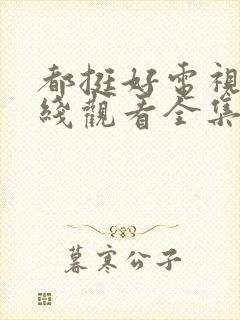 都挺好電視
綫觀看全集
暮寒公子